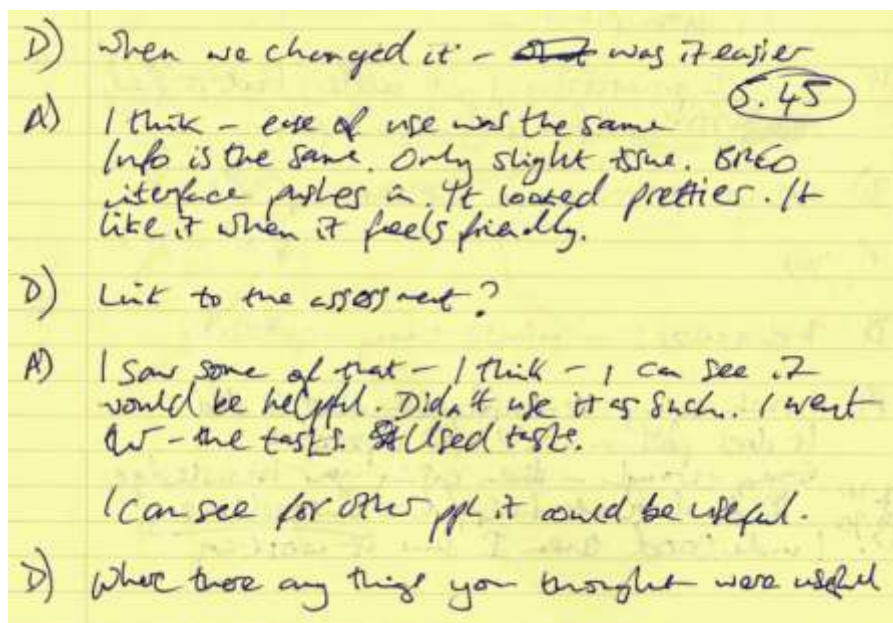 D) When we changed it - was it easier
5.45
A) I think - ease of use was the same
Info is the same. Only slight issue. BREO
interface pushes in. It looked prettier. It
like it when it feels friendly.
D) Link to the assessment?
A) I saw some of that - I think - I can see it
would be helpful. Didn't use it as such. I went
for - the tasks. Used tasks.
I can see for other ppl it could be useful.
D) there any things you thought were useful